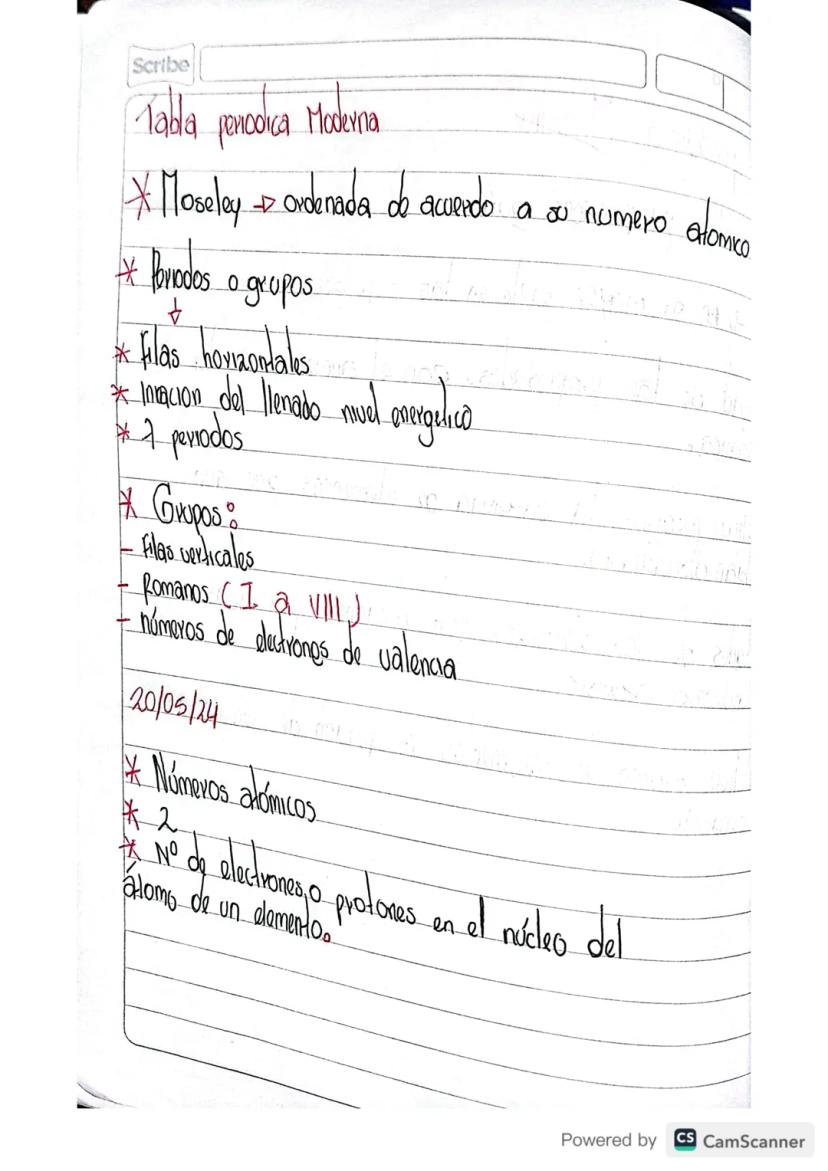 Scribe
Tabla periodica Moderna
* Moseley → ordenada de acuerdo a su numero atomico
* Periodos o grupos
↓
* Filas horizontales
* Iniciacion del llenado nivel energetico
* 7 periodos
* Grupos:
- Filas verticales
- Romanos (I a VIII)
- números de electrones de valencia
20/05/24
* Números atómicos
* 2
* Nº de electrones o protones en el núcleo del
átomo de un elemento.
Powered by CS CamScanner